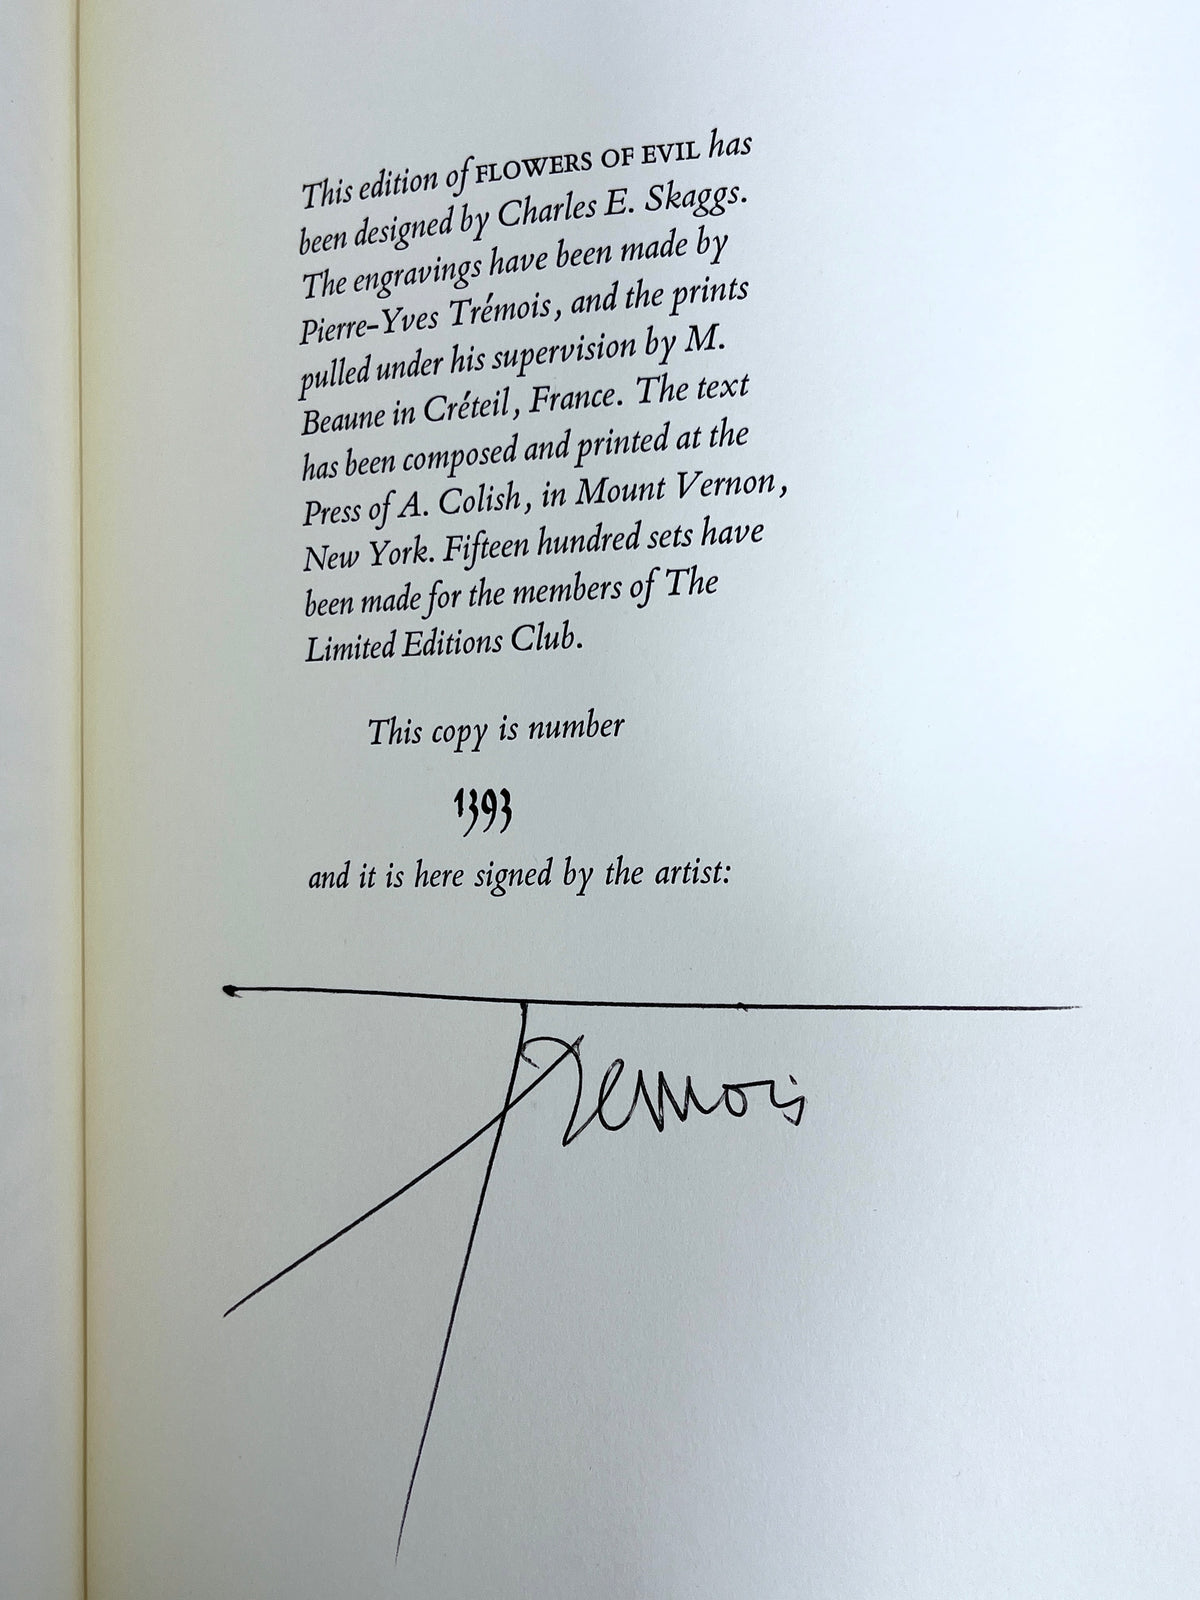 This edition of FLOWERS OF EVIL has
been designed by Charles E. Skaggs.
The engravings have been made by
Pierre-Yves Trémois, and the prints
pulled under his supervision by M.
Beaune in Créteil, France. The text
has been composed and printed at the
Press of A. Colish, in Mount Vernon,
New York. Fifteen hundred sets have
been made for the members of The
Limited Editions Club.
This copy is number
1393
and it is here signed by the artist:
Tremois